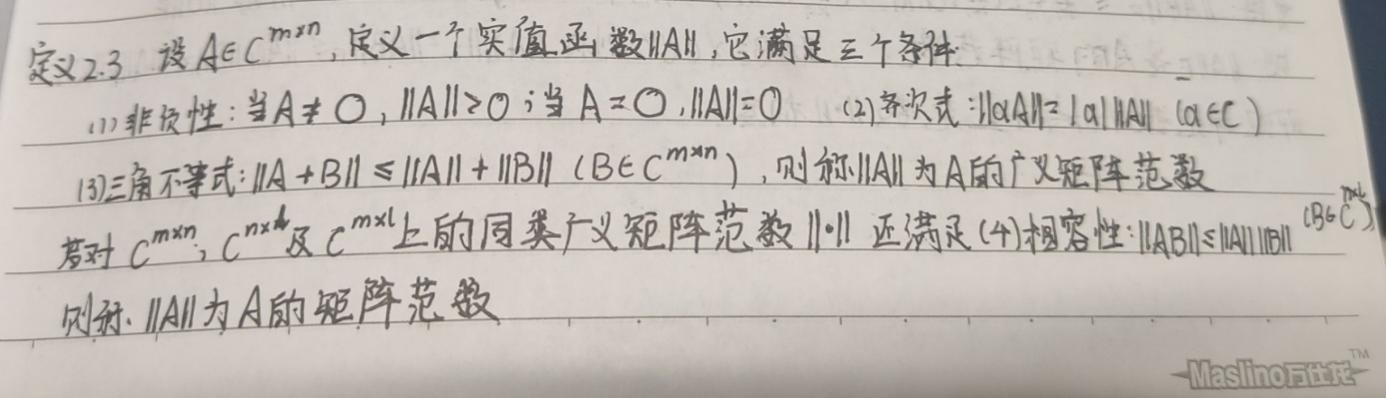 定义2.3 设A∈C^{m×n}, 定义一个实值函数||A||, 它满足三个条件
(1)非负性: 当A≠O, ||A||>0; 当A=O, ||A||=0 (2)齐次式: ||αA||=|α| ||A|| (α∈C)
(3)三角不等式: ||A+B||≤||A||+||B|| (B∈C^{m×n}), 则称||A||为A的广义矩阵范数
若对C^{m×n}, C^{n×l}及C^{m×l}上的同类广义矩阵范数||·||还满足(4)相容性: ||AB||≤||A||||B|| (B∈C^{n×l})
则称||A||为A的矩阵范数
Maslino万仕拓™